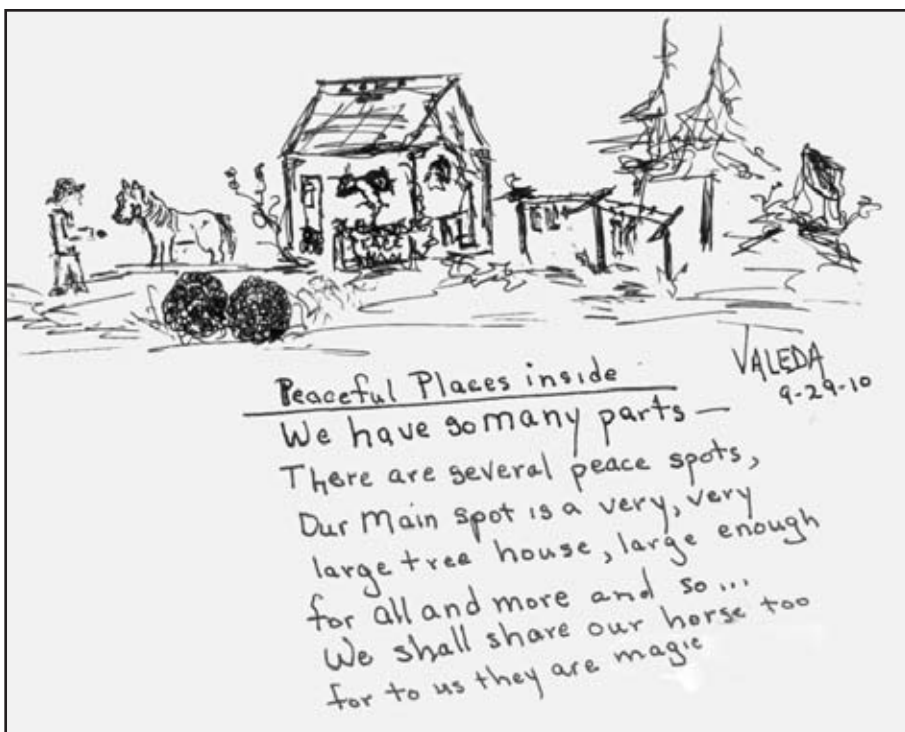 VALEDA
9-29-10
Peaceful Places inside
We have so many parts —
There are several peace spots,
Our Main spot is a very, very
large tree house, large enough
for all and more and so...
We shall share our horse too
for to us they are magic